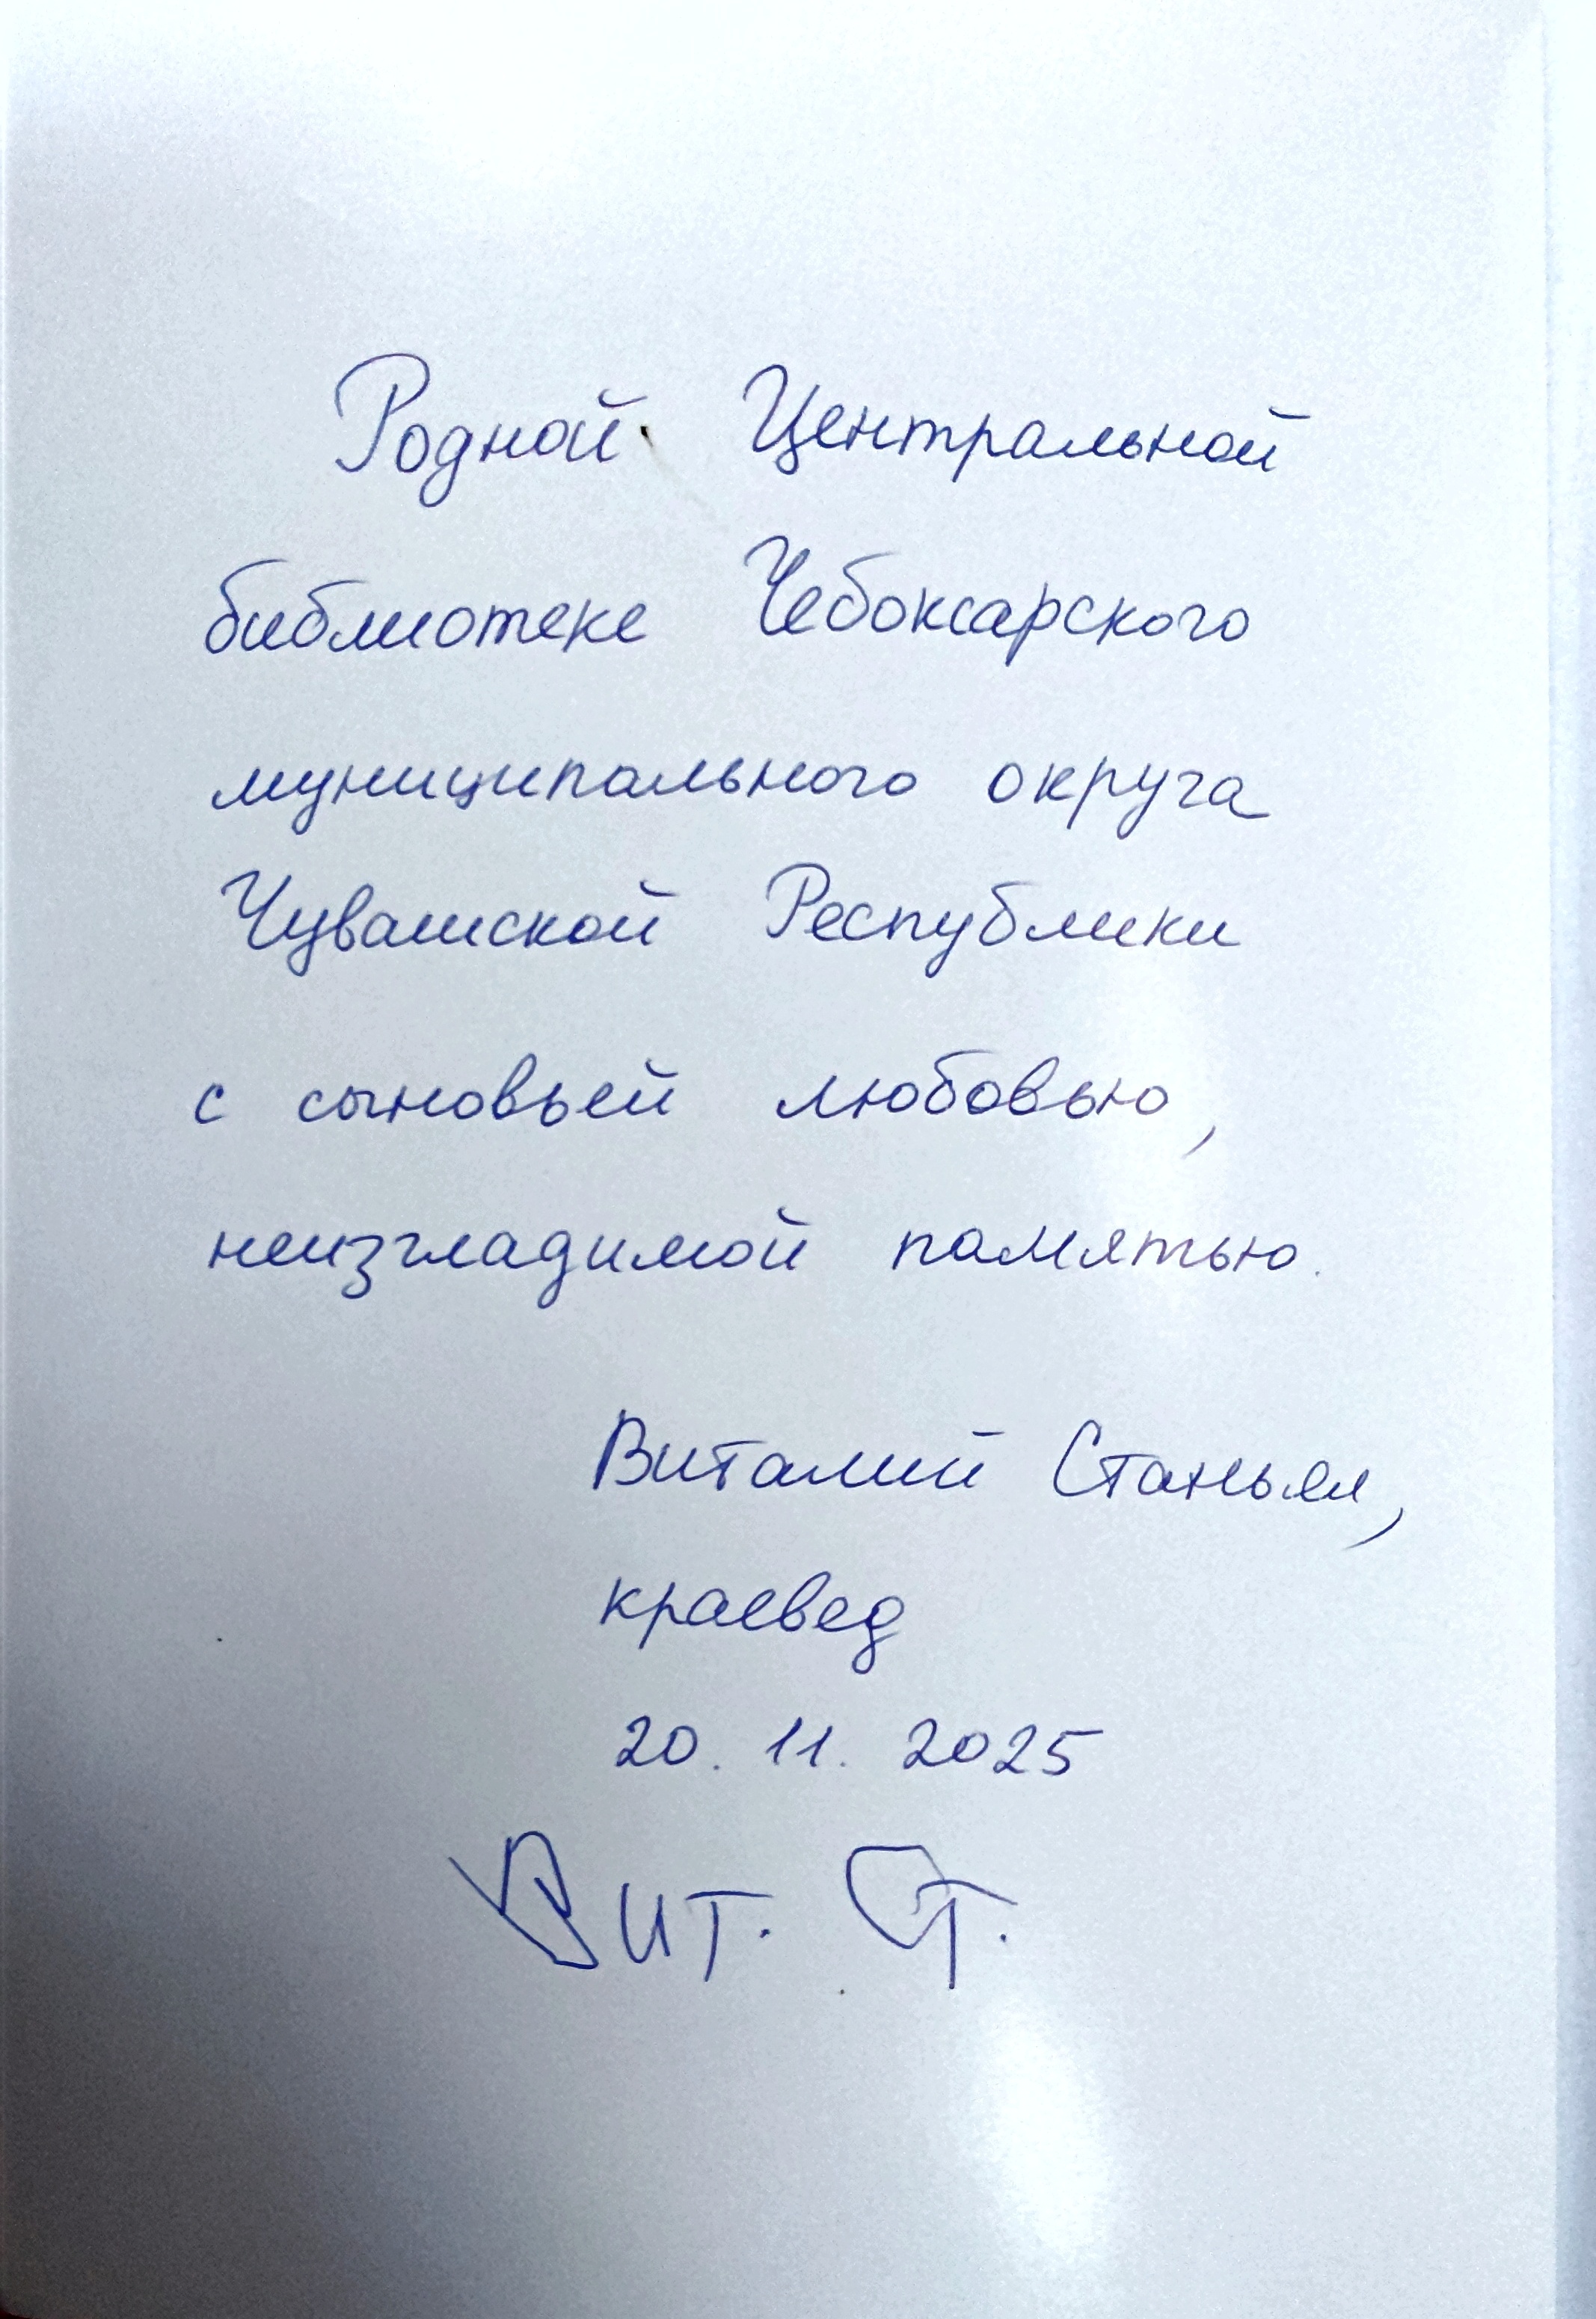 Родной Центральной
библиотеке Чебоксарского
муниципального округа
Чувашской Республики
с сыновьей любовью,
неизгладимой памятью.
Виталий Станьял,
краевед
20. 11. 2025
Вит. Ст.